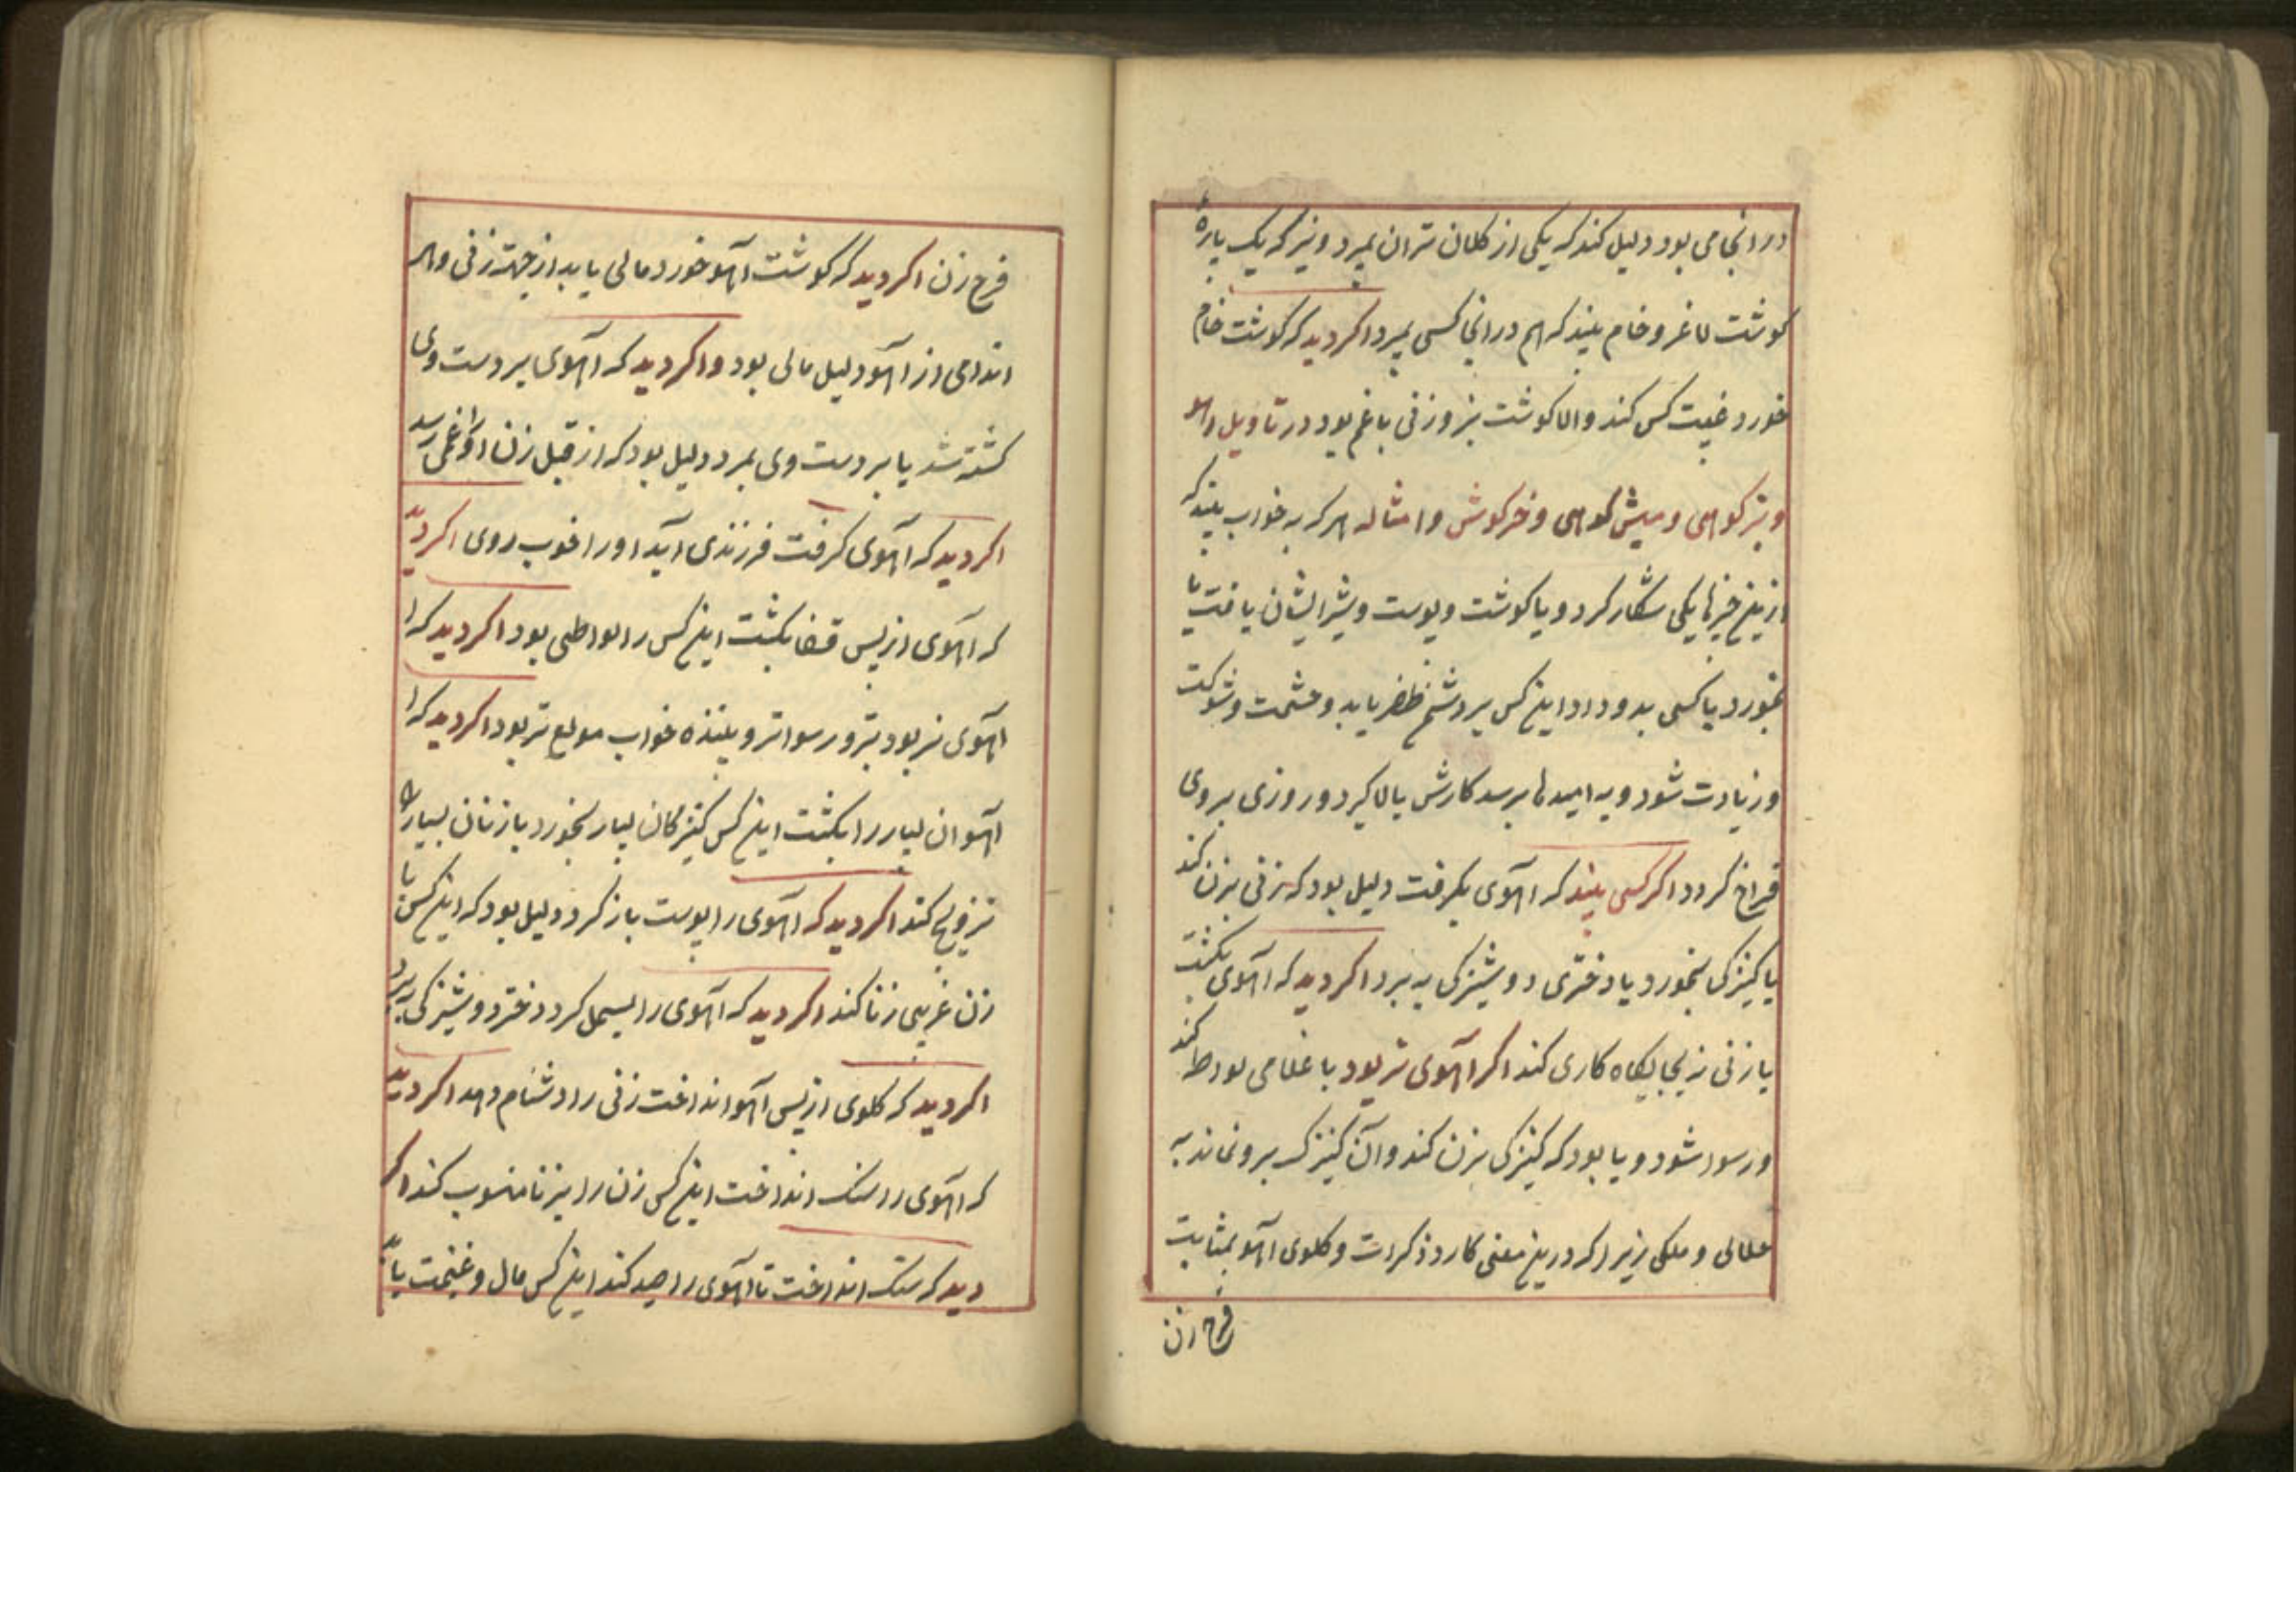 در انجامی بود دلیل کند که یکی از کلان تران بمیرد و نیز که یک پارهٔ
کوشت لاغر و خام بیند که هم در انجا کسی بمیرد اکر دید که کوشت خام
خورد غیبت کس کند والا کوشت بز وزنی باغم بود در تاویل اهو
و بز کوهی و میش کوهی و خرکوش و امثاله هر که به خواب بیند که
ازینخ خیرها یکی شکار کرد و یا کوشت و پوست و شیر ایشان یافت یا
بخورد یا کسی بدو داد اینخ کس بر دشمن ظفر یابد و حشمت و شوکت
و زیادت شود و به امیدها برسد کارش بالا کیرد و روزی بروی
فراخ کردد اکر کسی بیند که اهوی بکرفت دلیل بود که زنی بزن کند
یا کنیزکی بخورد یا دختری دوشیزکی به برد اکر دید که اهوی بکشت
با زنی نه بجایکاه کاری کند اکر اهوی نر بود با غلامی لواطه کند
و رسوا شود و یا بود که کنیزکی بزن کند وآن کنیزک برو نماند به
حلالی و ملکی زیرا که درینخ معنی کارد ذکر است و کلوی اهو بمثابت
فرج زن
فرج زن اکر دید که کوشت آهو خورد مالی یابد از جهت زنی و هر
اندامی از آهو دلیل مالی بود و اکر دید که آهوی بر دست وی
کشته شد یا بر دست وی بمرد دلیل بود که از قبل زن او را غمی رسد
اکر دید که آهوی کرفت فرزندی آید او را خوب روی اکر دید
که آهوی از پس قضا بکشت اینخ کس را لواطی بود اکر دید که
آهوی نر بود بتر و رسواتر و بیننده خواب مولع تر بود اکر دید که
آهوان بسیار را بکشت اینخ کس کنیزکان بسیار بخورد یا زنان بسیار
تزویج کند اکر دید که آهوی را پوست باز کرد دلیل بود که اینخ کس با
زن غریبی زنا کند اکر دید که آهوی را بسمل کرد دختر دوشیزکی ببرد
اکر دید که کلوی از پس آهو انداخت زنی را دشنام دهد اکر دید
که آهوی را سنک انداخت اینخ کس زن را بزنا منسوب کند اکر
دید که سنک انداخت تا آهوی را صید کند اینخ کس مال و غنیمت یابد